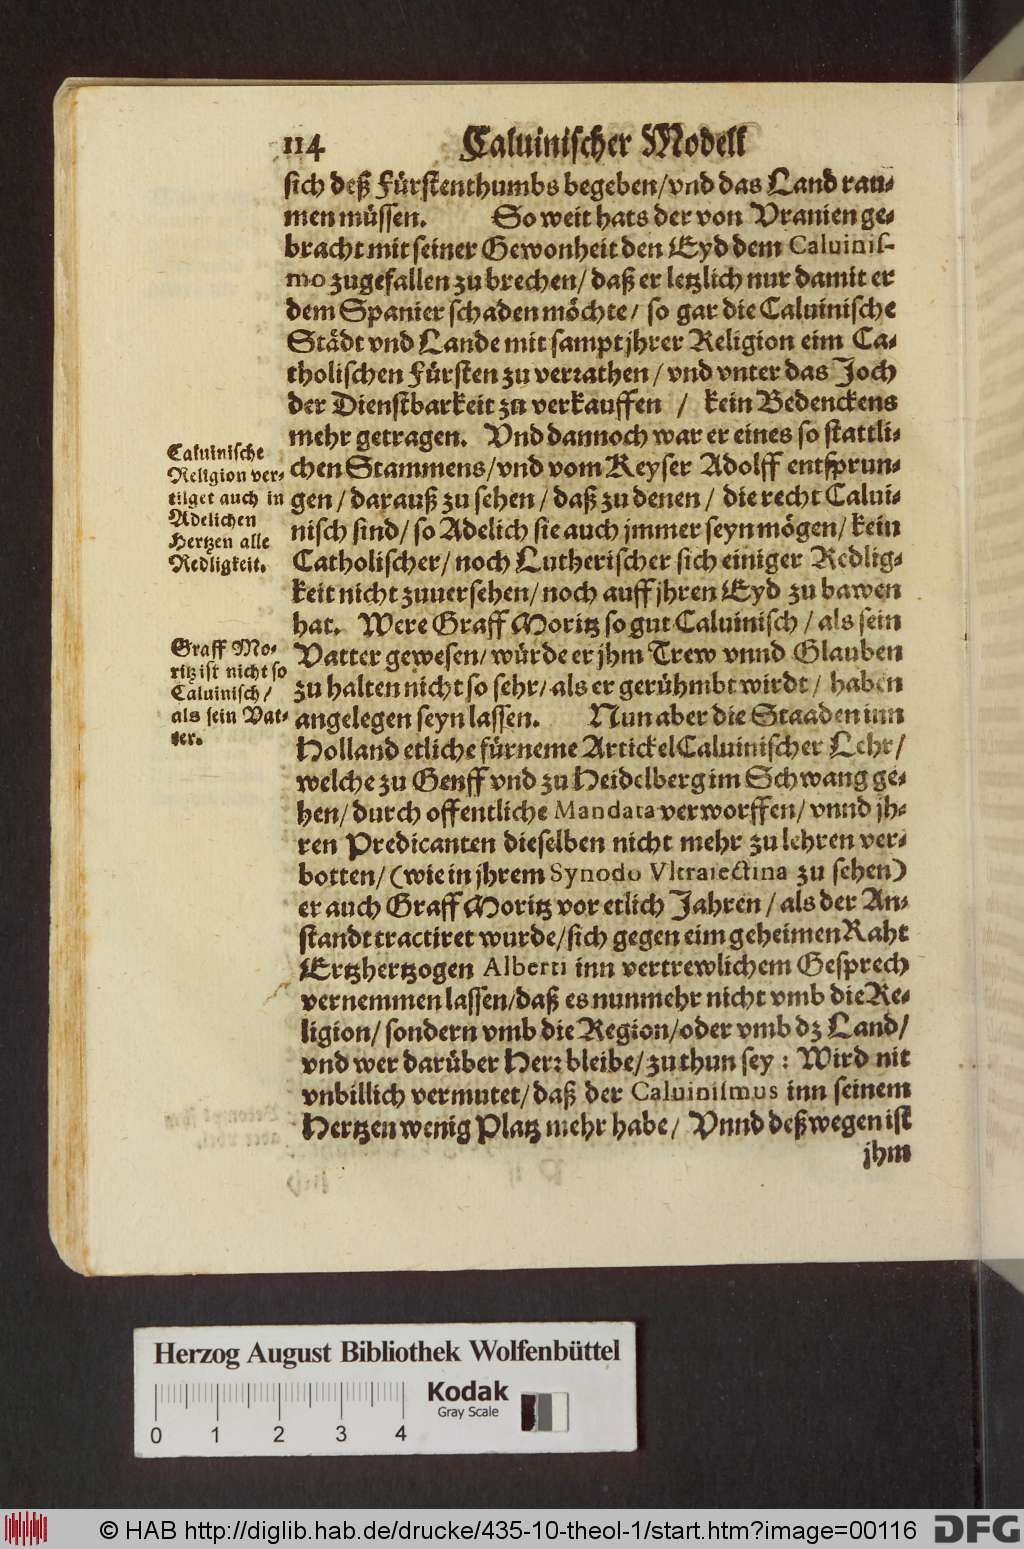 114 Caluinischer Modell
sich deß Fürstenthumbs begeben/vnd das Land rau-
men müssen. So weit hats der von Vranien ge-
bracht mit seiner Gewonheit den Eyd dem Caluinis-
mo zugefallen zu brechen/ daß er letzlich nur damit er
dem Spanier schaden möchte/ so gar die Caluinische
Städt vnd Lande mit sampt jhrer Religion eim Ca-
tholischen Fürsten zu verrathen/ vnd vnter das Joch
der Dienstbarkeit zu verkauffen / kein Bedenckens
mehr getragen. Vnd dannoch war er eines so stattli-
chen Stammens/ vnd vom Keyser Adolff entsprun-
gen/ darauß zu sehen/ daß zu denen/ die recht Calui-
nisch sind/ so Adelich sie auch jmmer seyn mögen/ kein
Catholischer/ noch Lutherischer sich einiger Redlig-
keit nicht zuuersehen/ noch auff jhren Eyd zu bawen
hat. Were Graff Moritz so gut Caluinisch/ als sein
Vatter gewesen/ würde er jhm Trew vnnd Glauben
zu halten nicht so sehr/ als er gerühmbt wirdt/ haben
angelegen seyn lassen. Nun aber die Staaden inn
Holland etliche fürneme Artickel Caluinischer Lehr/
welche zu Genff vnd zu Heidelberg im Schwang ge-
hen/ durch offentliche Mandata verworffen/ vnnd jh-
ren Predicanten dieselben nicht mehr zu lehren ver-
botten/ (wie in jhrem Synodo Vltraiectina zu sehen)
er auch Graff Moritz vor etlich Jahren/ als der An-
standt tractiret wurde/ sich gegen eim geheimen Raht
Ertzhertzogen Alberti inn vertrewlichem Gesprech
vernemmen lassen/ daß es nunmehr nicht vmb die Re-
ligion/ sondern vmb die Region/ oder vmb dz Land/
vnd wer darüber Herr bleibe/ zu thun sey : Wird nit
vnbillich vermutet/ daß der Caluinismus inn seinem
Hertzen wenig Platz mehr habe/ Vnnd deßwegen ist
jhm
Caluinische
Religion ver-
tilget auch in
Adelichen
Hertzen alle
Redligkeit.
Graff Mo-
ritz ist nicht so
Caluinisch/
als sein Vat-
ter.
Herzog August Bibliothek Wolfenbüttel
Kodak
Gray Scale
0 1 2 3 4
© HAB http://diglib.hab.de/drucke/435-10-theol-1/start.htm?image=00116
DFG